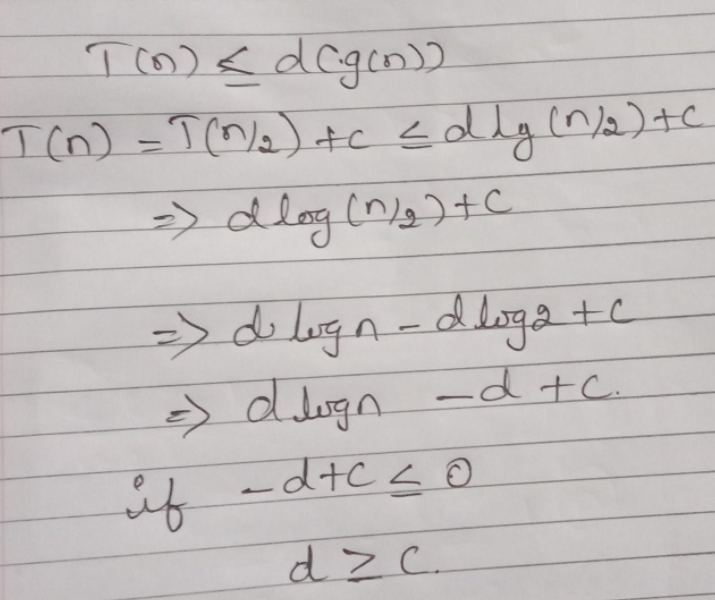 T(n) ≤ d(g(n))
T(n) = T(n/2) + c ≤ d lg (n/2) + c
=> d log (n/2) + c
=> d log n - d log 2 + c
=> d log n - d + c.
if -d + c ≤ 0
d ≥ c.